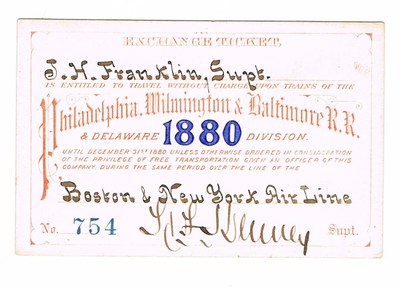 EXCHANGE TICKET.
J. H. Franklin, Supt.
IS ENTITLED TO TRAVEL WITHOUT CHARGE UPON TRAINS OF THE
Philadelphia, Wilmington & Baltimore R.R.
& DELAWARE 1880 DIVISION.
UNTIL DECEMBER 31ST 1880 UNLESS OTHERWISE ORDERED, IN CONSIDERATION
OF THE PRIVILEGE OF FREE TRANSPORTATION GIVEN AN OFFICER OF THIS
COMPANY, DURING THE SAME PERIOD OVER THE LINE OF THE
Boston & New York Air Line
No. 754 Supt.